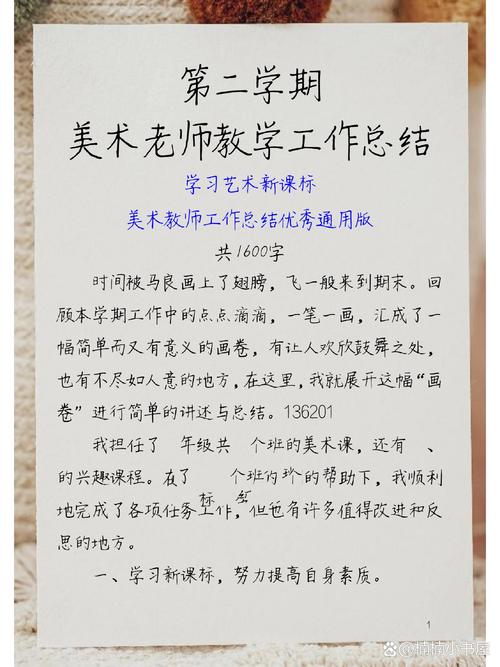 第二学期
美术老师教学工作总结
学习艺术新课标
美术教师工作总结优秀通用版
共1600字
时间被马良画上了翅膀，飞一般来到期末。回
顾本学期工作中的点点滴滴，一笔一画，汇成了一
幅简单而又有意义的画卷，有让人欢欣鼓舞之处，
也有不尽如人意的地方，在这里，我就展开这幅“画
卷”进行简单的讲述与总结。136201
我担任了 年级共 个班的美术课，还有 、
的兴趣课程。在了 个班的 的帮助下，我顺利
地完成了各项任务工作，但也有许多值得改进和反
思的地方。
一、学习新课标，努力提高自身素质。
1
@楠楠小书屋